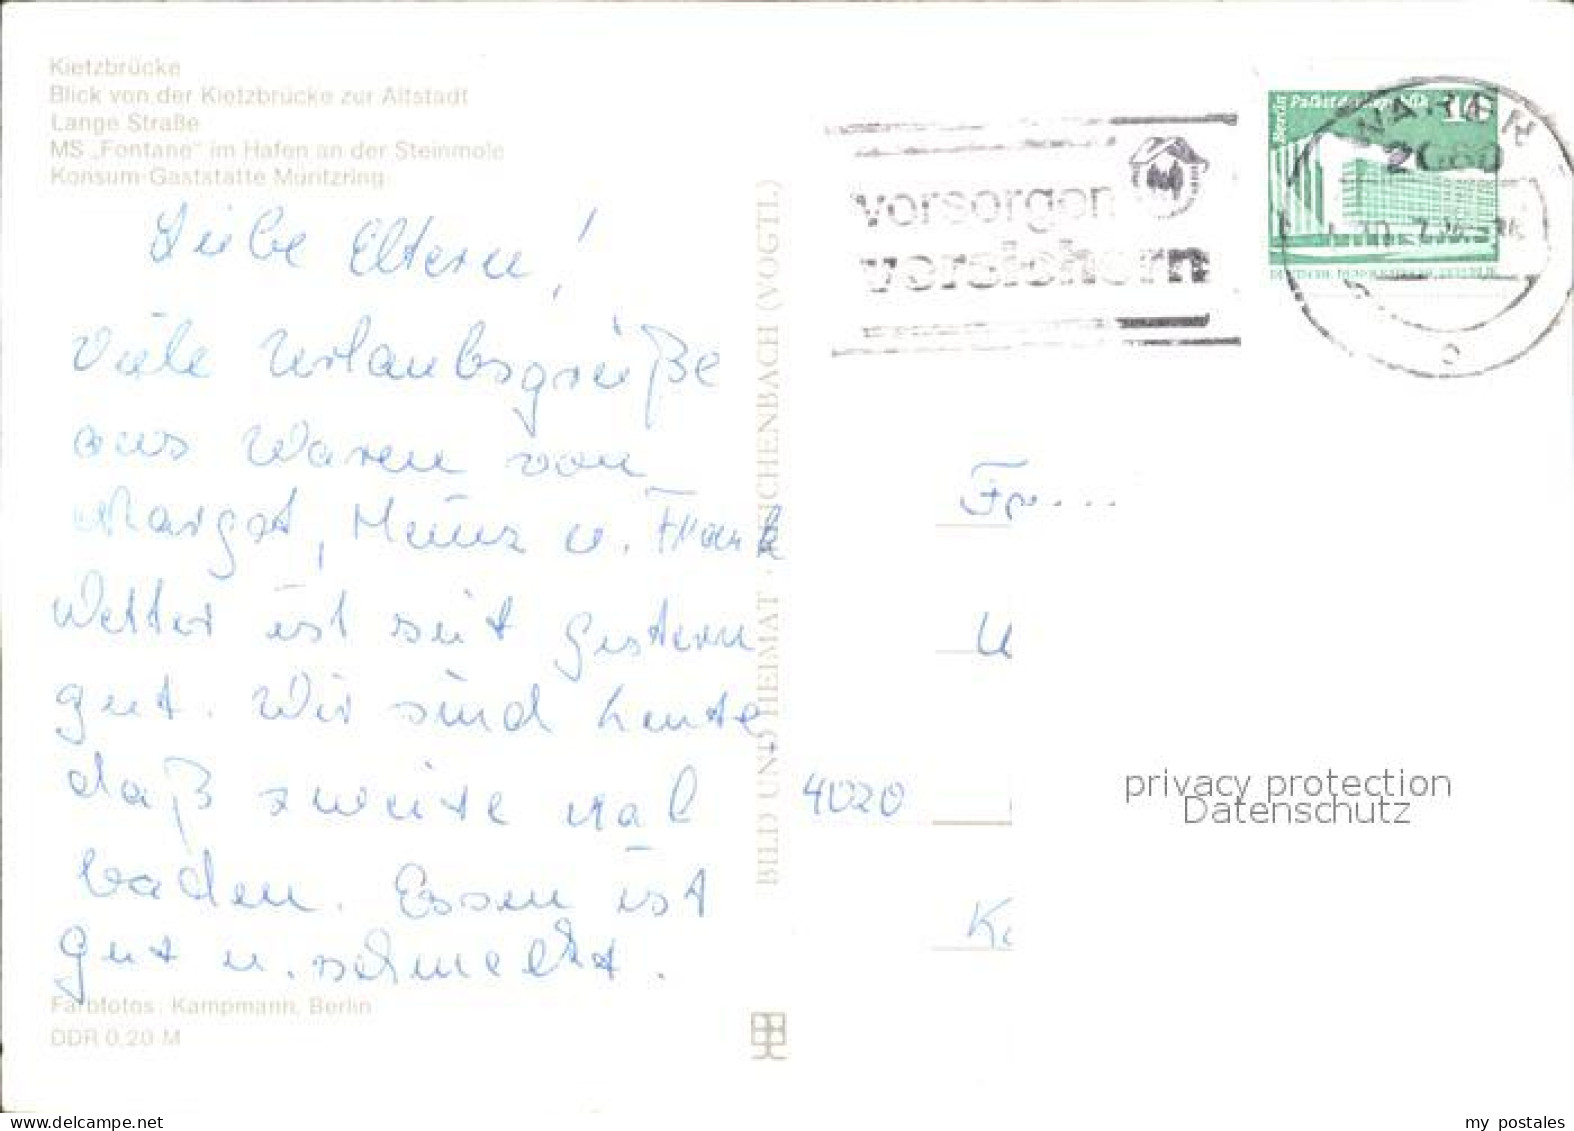 Kietzbrücke
Blick von der Kietzbrücke zur Altstadt
Lange Straße
MS „Fontane" im Hafen an der Steinmole
Konsum-Gaststätte Müritzring
Liebe Eltern!
Viele Urlaubsgrüße
aus Waren von
Margot, Heinz u. Frank
Wetter ist seit gestern
gut. Wir sind heute
daß zweite Mal
baden. Essen ist
gut u. schmeckt.
Farbfotos: Kampmann, Berlin
DDR 0,20 M
BILD UND HEIMAT · REICHENBACH (VOGTL)
vorsorgen
versichern
Berlin Palast der Republik 10
DEUTSCHE DEMOKRATISCHE REPUBLIK
WAREN
2060
4020
privacy protection
Datenschutz
my postales